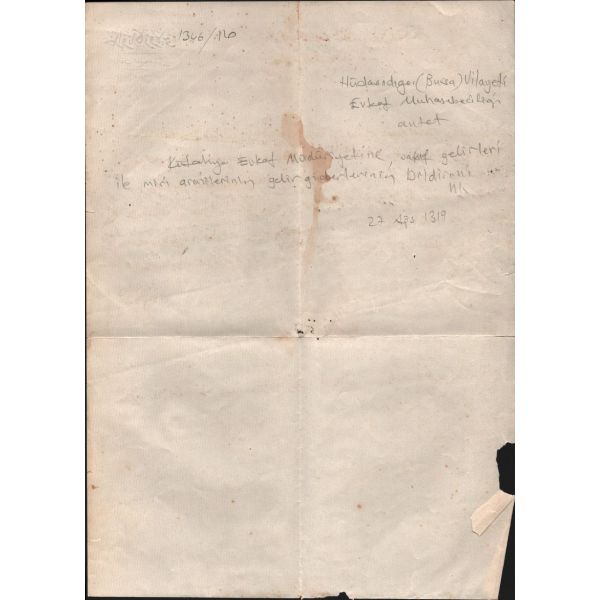 1346/120
Hüdavendigar (Bursa) Vilayeti
Evkaf Muhasebeciliği
antet
Kütahya Evkaf Müdüriyetine, vakıf gelirleri
ile miri arazilerinin gelir giderlerinin bildirimi
27 Ağs 1319